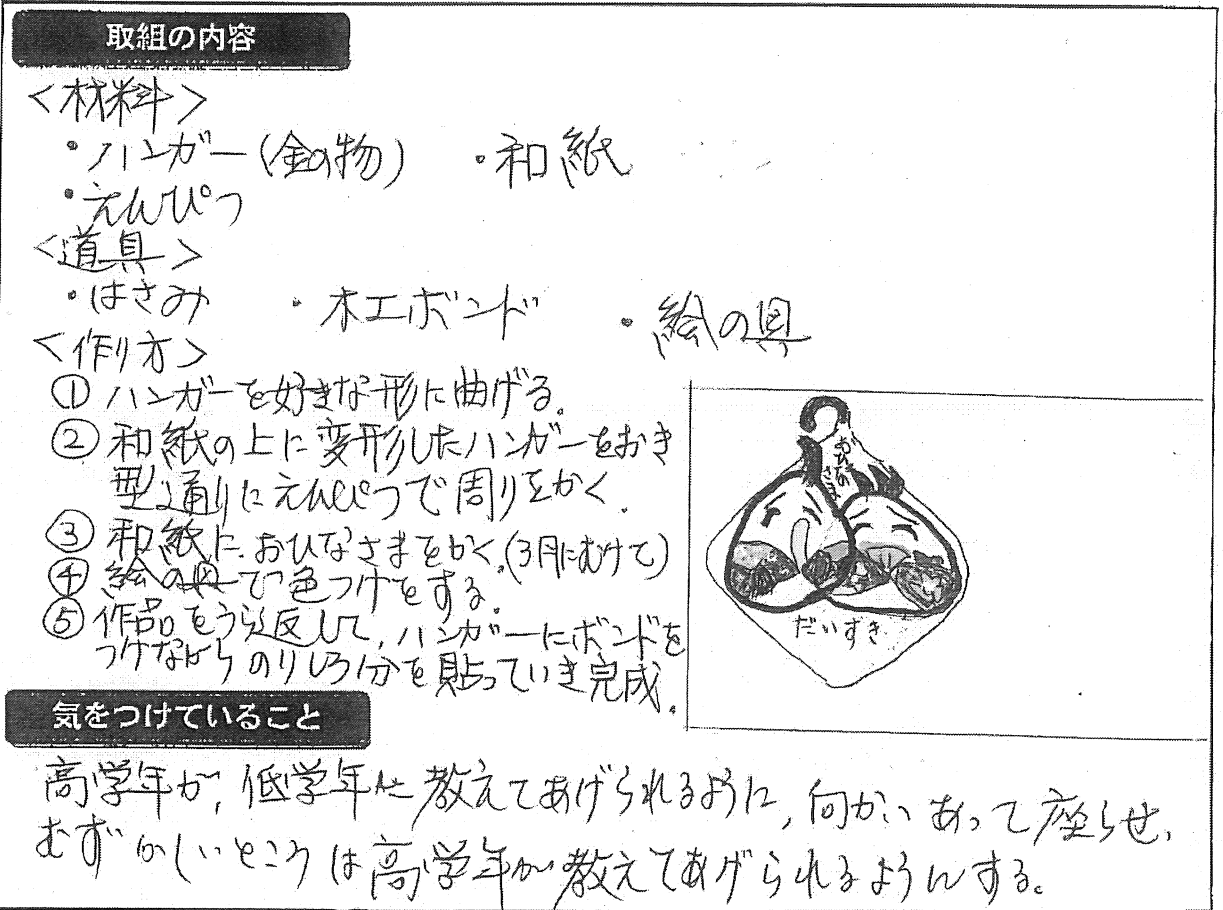 取組の内容
<材料>
・ハンガー(金の物) ・和紙
・えんぴつ
<道具>
・はさみ ・木工ボンド ・絵の具
<作り方>
① ハンガーを好きな形に曲げる。
② 和紙の上に変形したハンガーをおき
型通りにえんぴつで周りをかく。
③ 和紙に、おひなさまをかく。(3月にむけて)
④ 絵の具で色つけをする。
⑤ 作品をうら返して、ハンガーにボンドを
つけながらのりしろ分を貼っていき完成。
おひなさま
だいすき
気をつけていること
高学年が、低学年に教えてあげられるように、向かいあって座らせ、
むずかしいところは高学年が教えてあげられるようにする。